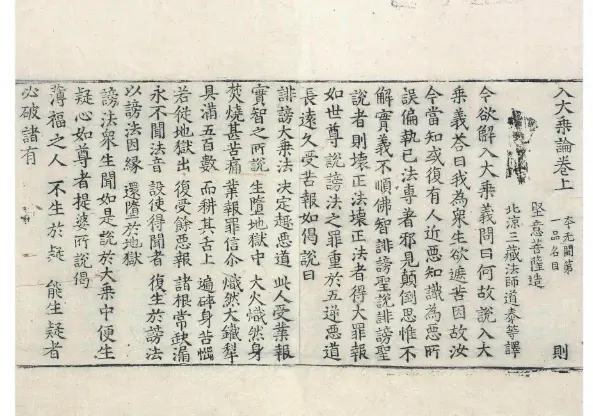 入大乗論卷上 本先闕第一品名目 則
堅意菩薩造
北涼三藏法師道泰等譯
今欲解入大乗義問曰何故說入大
乗義荅曰我為衆生欲遮苦因故汝
今當知或復有人近惡知識為惡所
誤偏執已法專著邪見顛倒思惟不
解實義不順佛智誹謗聖說誹謗聖
說者則壊正法壊正法者得大罪報
如世尊說謗法之罪重於五逆惡道
長遠久受苦報如偈說曰
誹謗大乗法 决定趣惡道 此人受業報
實智之所說 生墮地獄中 大火熾然身
焚燒甚苦痛 業報罪信尒 熾然大鐵犁
具滿五百數 而耕其舌上 遍碎身苦惱
若從地獄出 復受餘惡報 諸根常缺漏
永不聞法音 設使得聞者 復生於謗法
以謗法因緣 還墮於地獄
謗法衆生聞如是說於大乗中便生
疑心如尊者提婆所說偈
薄福之人 不生於疑 能生疑者
必破諸有